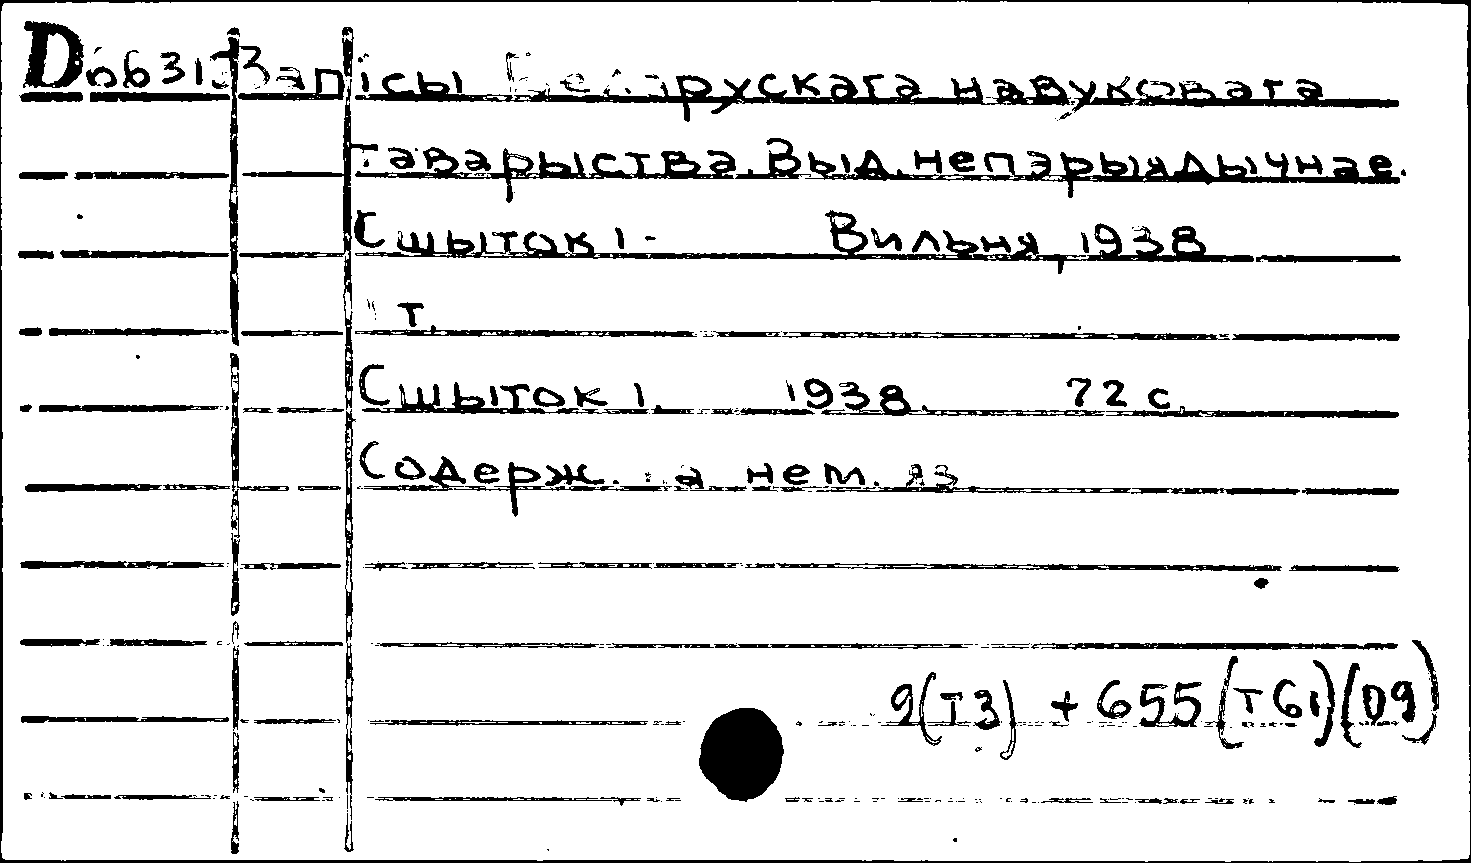 Запісы Беларускага навуковага
таварыства. Выд. непэрыядычнае.
Сшыток 1- Вильня, 1938
т.
Сшыток 1. 1938. 72 с.
Содерж. на нем. яз.
9(Т3) + 655(Т61)(09)